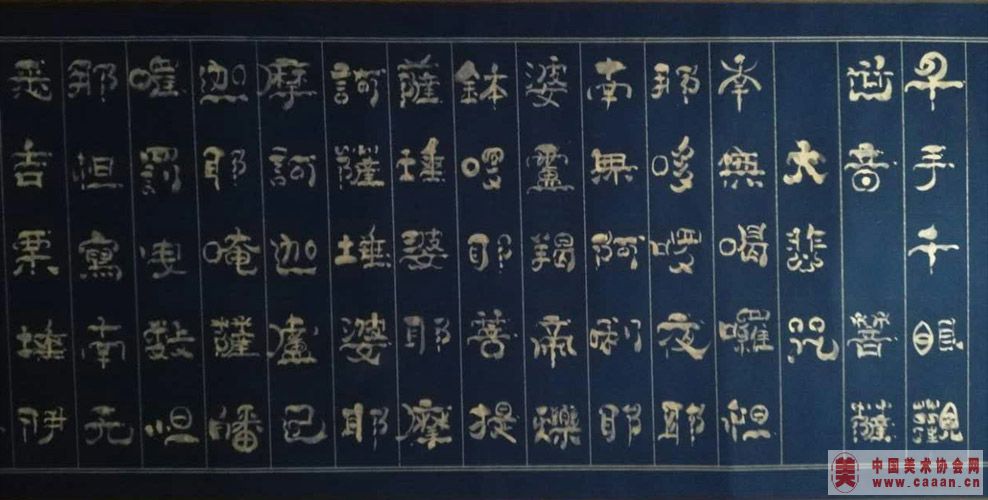 千手千眼觀
世音菩薩
大悲咒
南無喝囉怛
那哆囉夜耶
南無阿唎耶
婆盧羯帝爍
鉢囉耶菩提
薩埵婆耶摩
訶薩埵婆耶
摩訶迦盧尼
迦耶唵薩皤
囉罰曳數怛
那怛寫南无
悉吉栗埵伊
美 中国美术协会网
www.caaan.cn